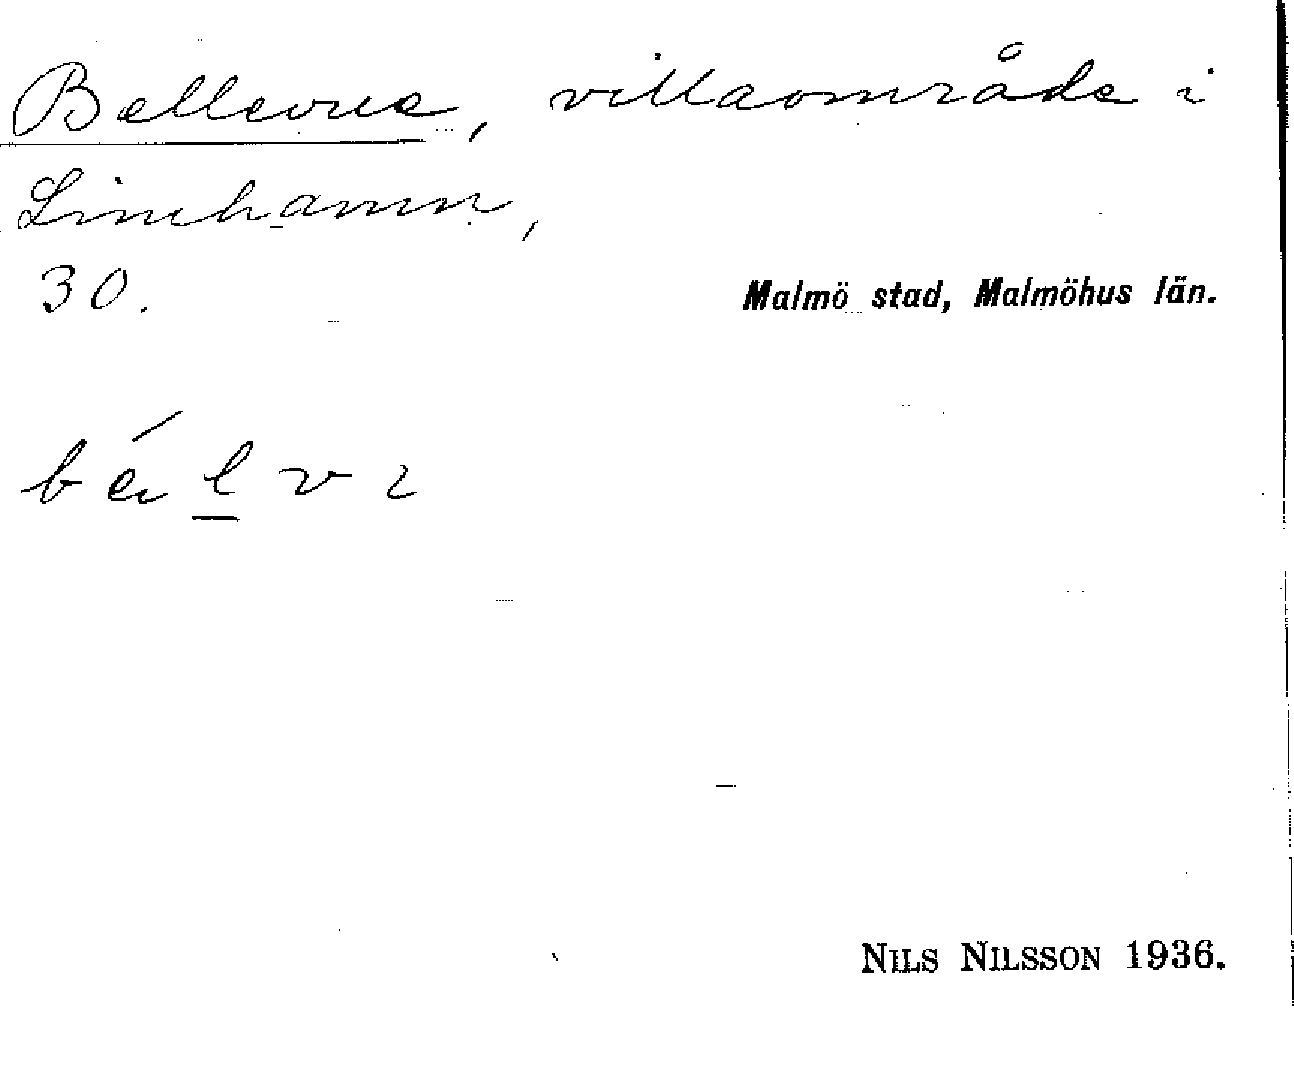 Bellevue, villaområde i
Limhamn,
30.
Malmö stad, Malmöhus län.
NILS NILSSON 1936.